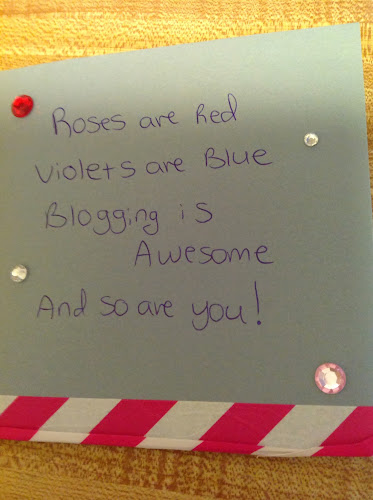 Roses are Red
Violets are Blue
Blogging is
Awesome
And so are you!